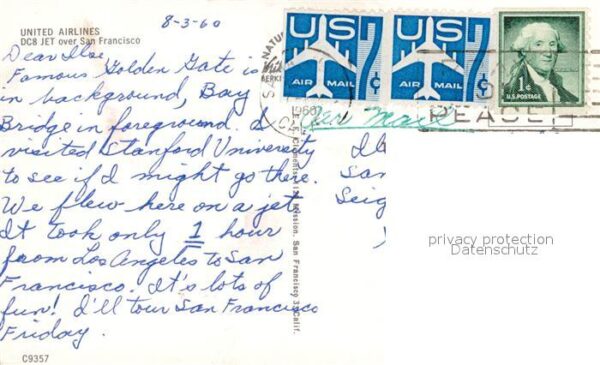 UNITED AIRLINES
DC8 JET over San Francisco
8-3-60
Dear Ilse,
Famous Golden Gate is
in background, Bay
Bridge in foreground. I
visited Stanford University
to see if I might go there.
We flew here on a jet
It took only 1 hour
from Los Angeles to San
Francisco. It's lots of
fun! I'll tour San Francisco
Friday.
C9357
Mission, San Francisco 3, Calif.
US
7¢
AIR MAIL
US
7¢
AIR MAIL
1¢
U.S. POSTAGE
1960
PEACE
Air Mail
San
Seig
privacy protection
Datenschutz